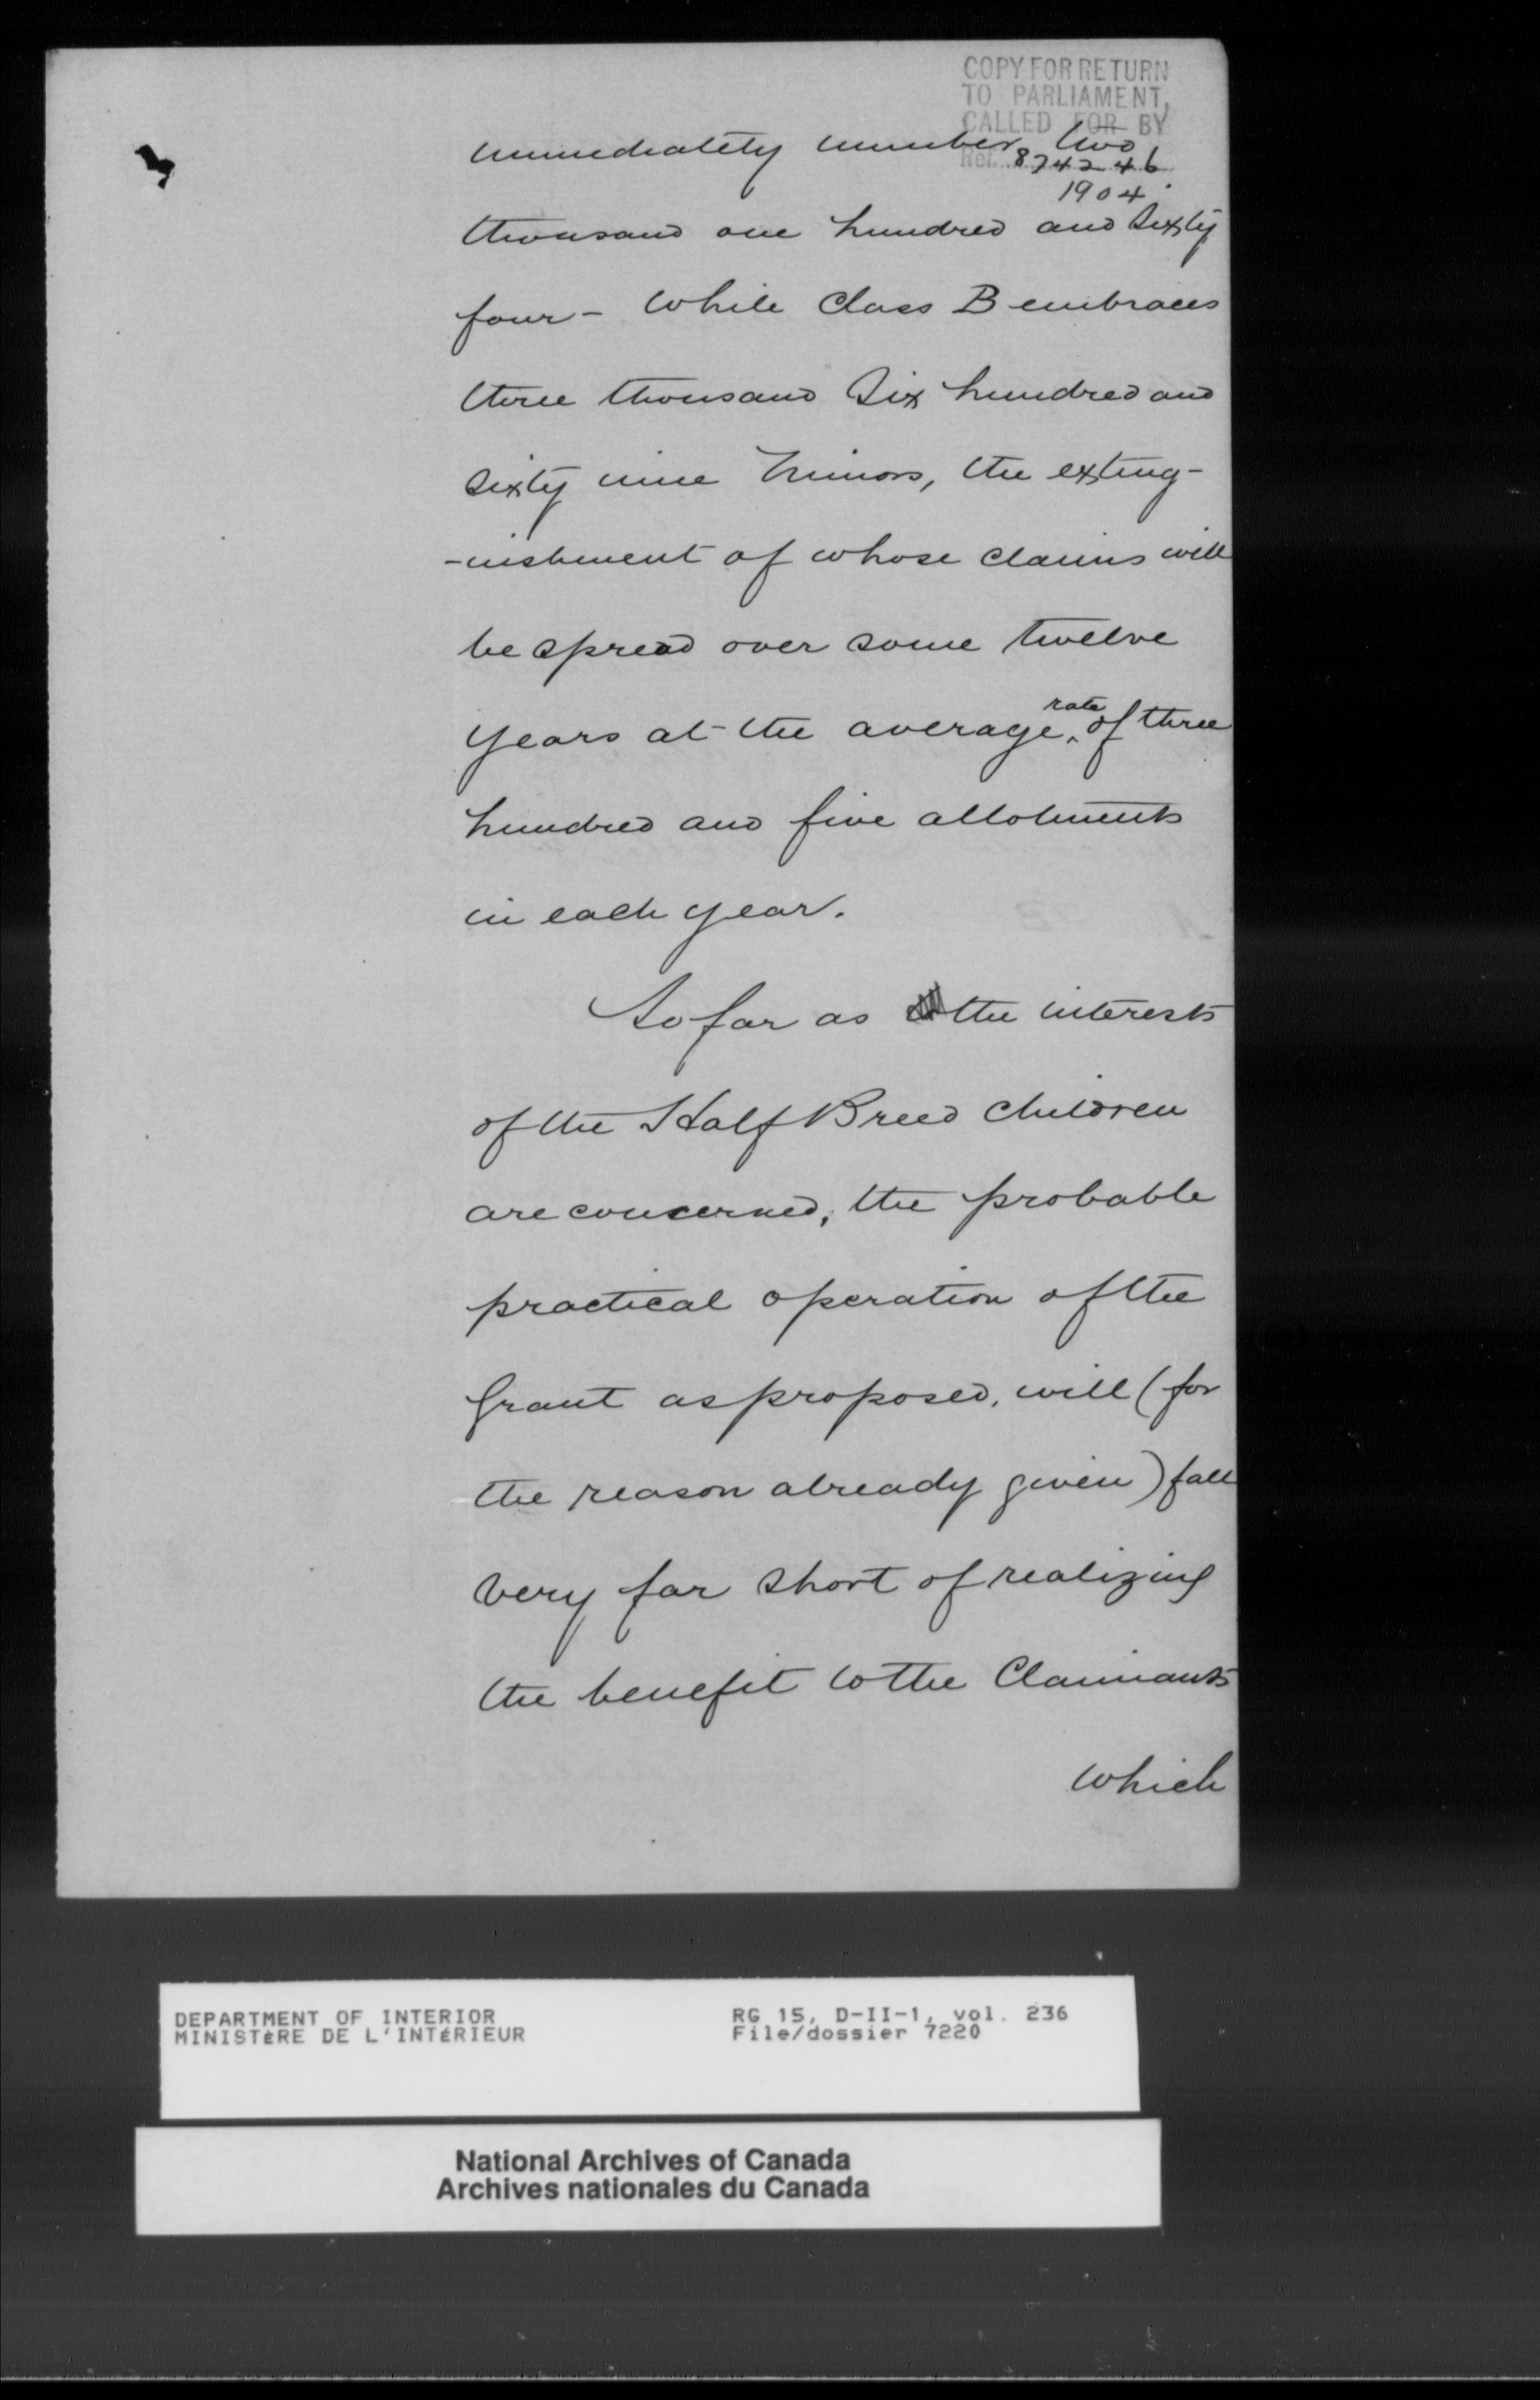 COPY FOR RETURN
TO PARLIAMENT,
CALLED FOR BY
Ref. 874246
1904.
immediately number two
thousand one hundred and sixty
four - While Class B embraces
three thousand Six hundred and
Sixty nine Minors, the exting-
-uishment of whose claims will
be spread over some twelve
years at the average rate of three
hundred and five allotments
in each year.
So far as the interests
of the Half Breed children
are concerned, the probable
practical operation of the
Grant as proposed, will (for
the reason already given) fall
very far short of realizing
the benefit to the Claimants
which
DEPARTMENT OF INTERIOR
MINISTÈRE DE L'INTÉRIEUR
RG 15, D-II-1, vol. 236
File/dossier 7220
National Archives of Canada
Archives nationales du Canada